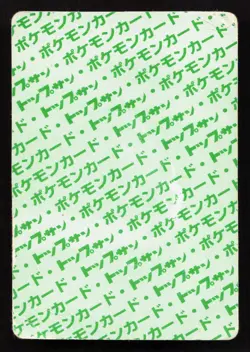 ポケモンカード・
トップサン・ポケモンカード・
ポケモンカード・トップサン・
ポケモンカード・トップサン・ポケモンカード
トップサン・ポケモンカード・トップサン
ポケモンカード・トップサン・ポケモンカード
トップサン・ポケモンカード・トップサン
ポケモンカード・トップサン・ポケモンカード
トップサン・ポケモンカード・
ポケモンカード・トップサン・
トップサン・ポケモンカード
ポケモンカード・